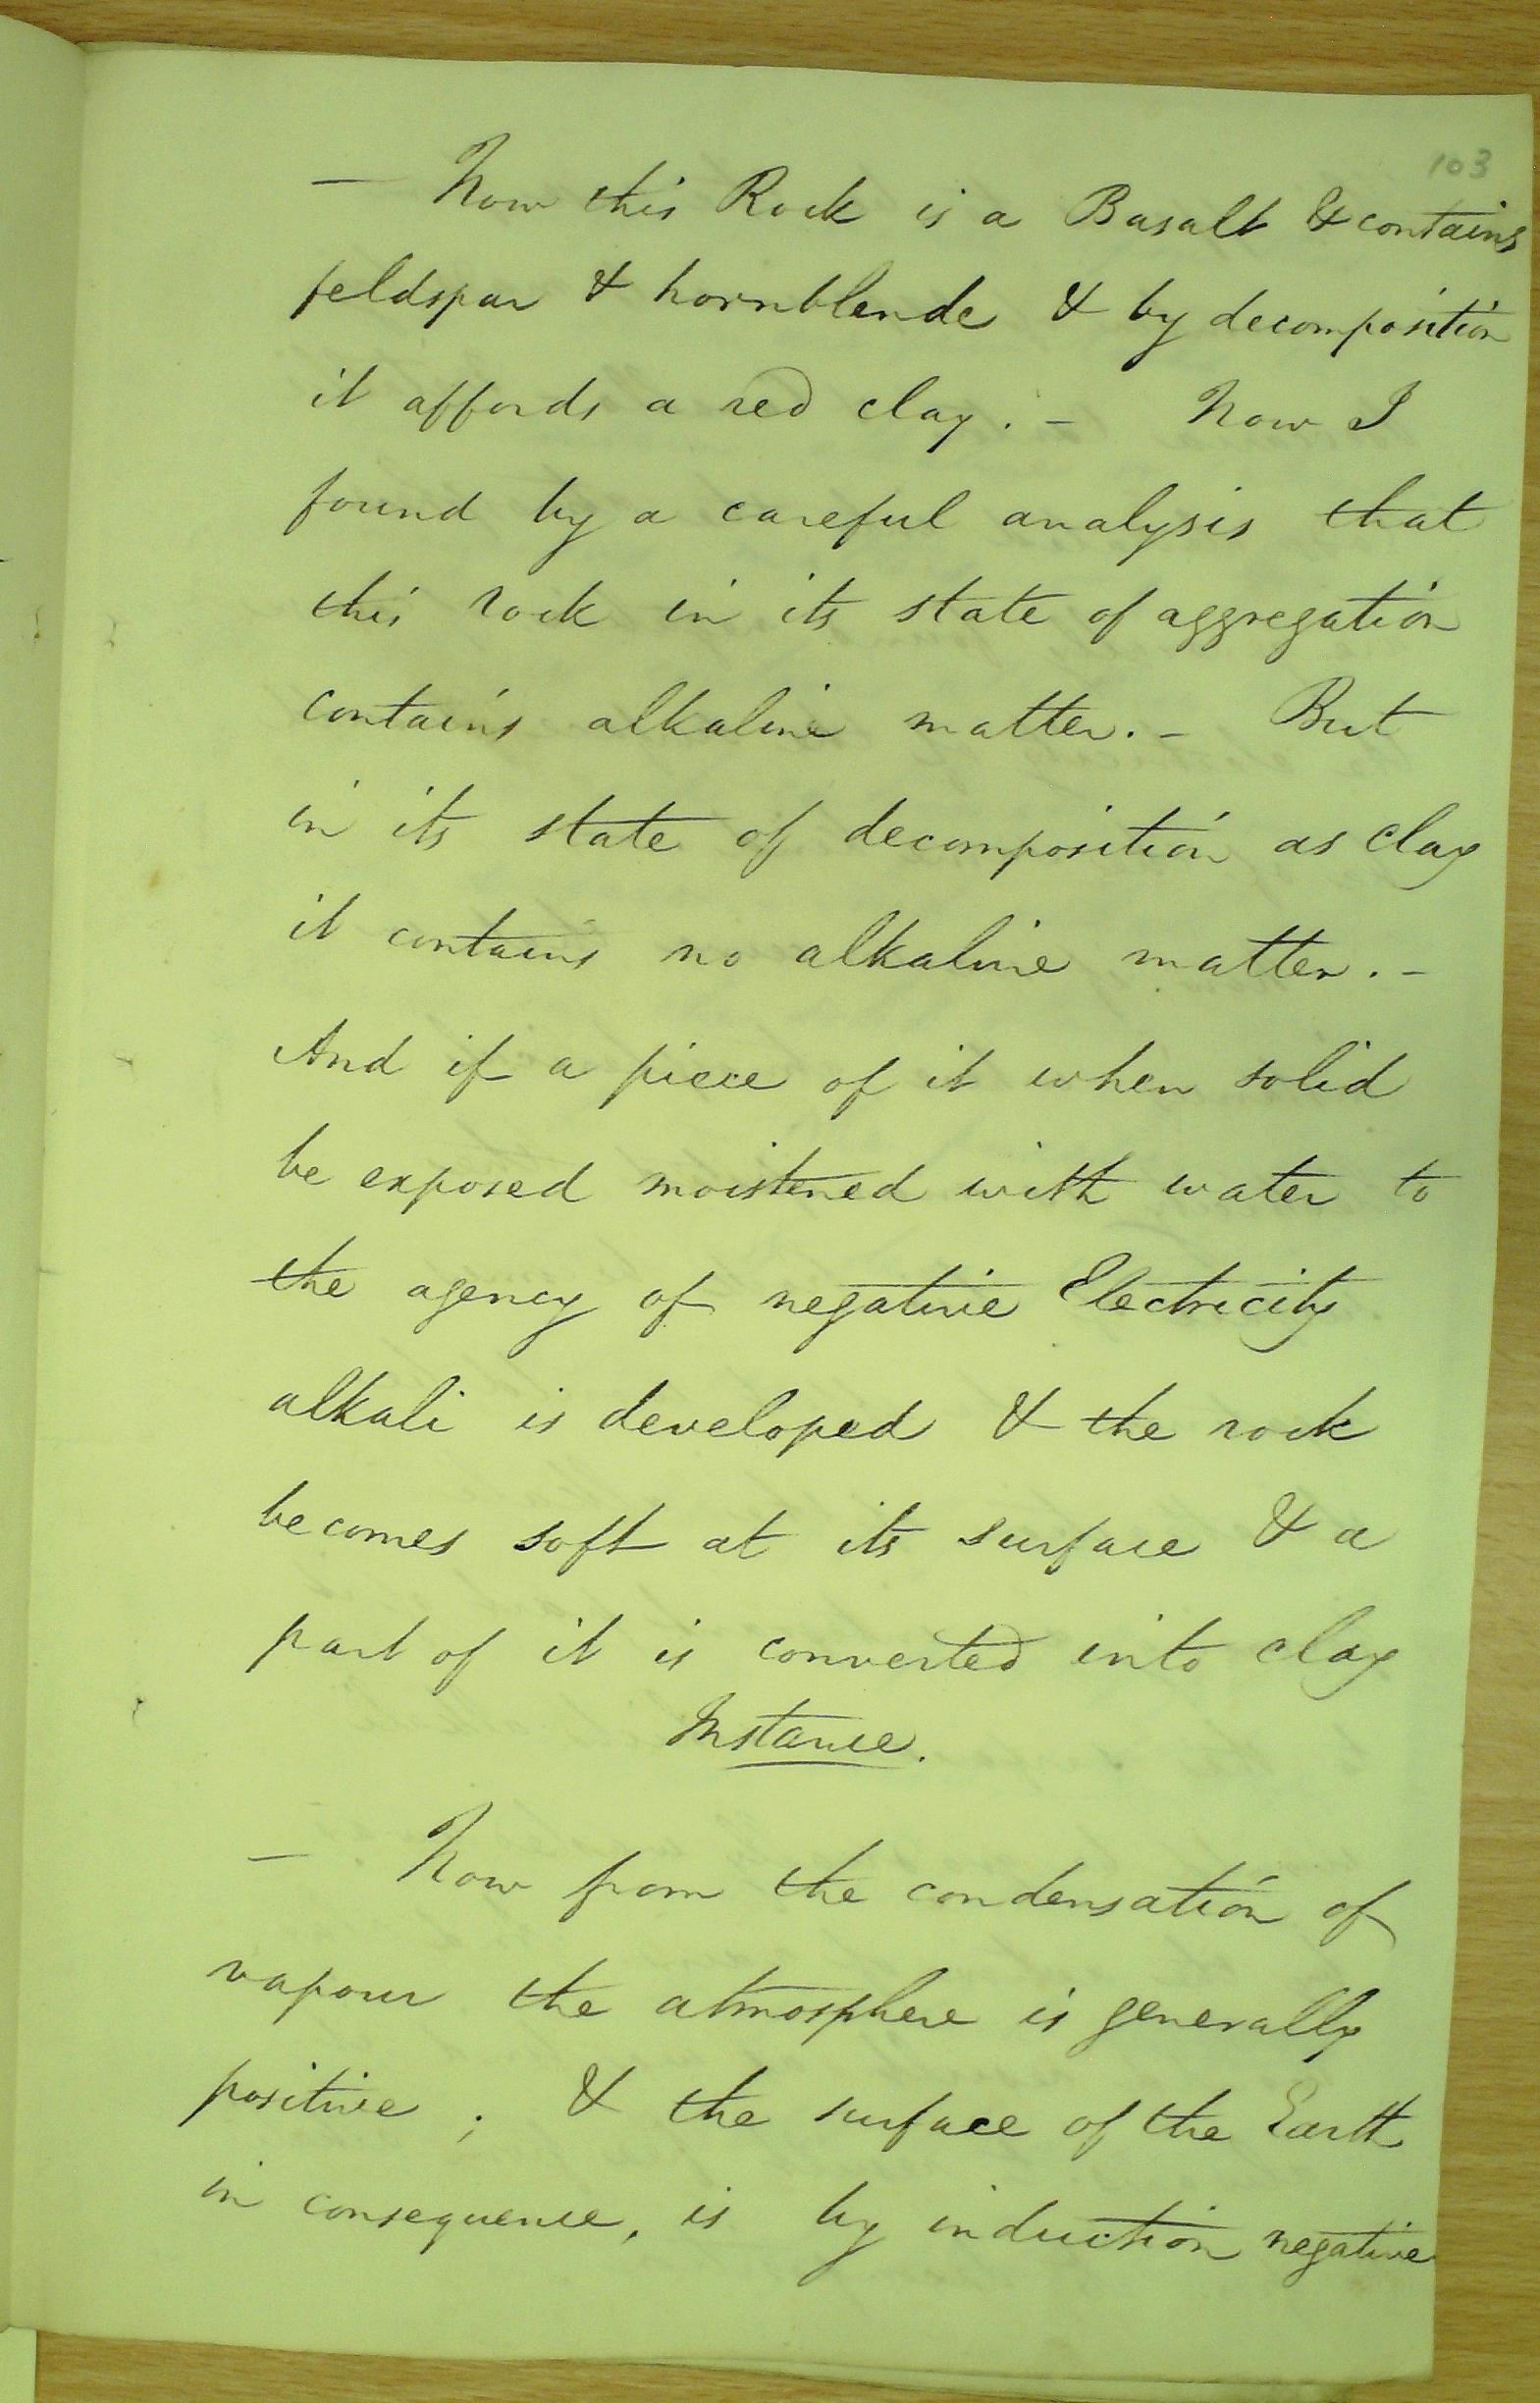 103
— Now this Rock is a Basalt & contains
feldspar & hornblende & by decomposition
it affords a red clay. – Now I
found by a careful analysis that
this rock in its state of aggregation
contains alkaline matter. – But
in its state of decomposition as clay
it contains no alkaline matter. –
And if a piece of it when solid
be exposed moistened with water to
the agency of negative Electricity
alkali is developed & the rock
becomes soft at its surface & a
part of it is converted into clay
Instance.
— Now from the condensation of
vapour the atmosphere is generally
positive; & the surface of the Earth
in consequence, is by induction negative